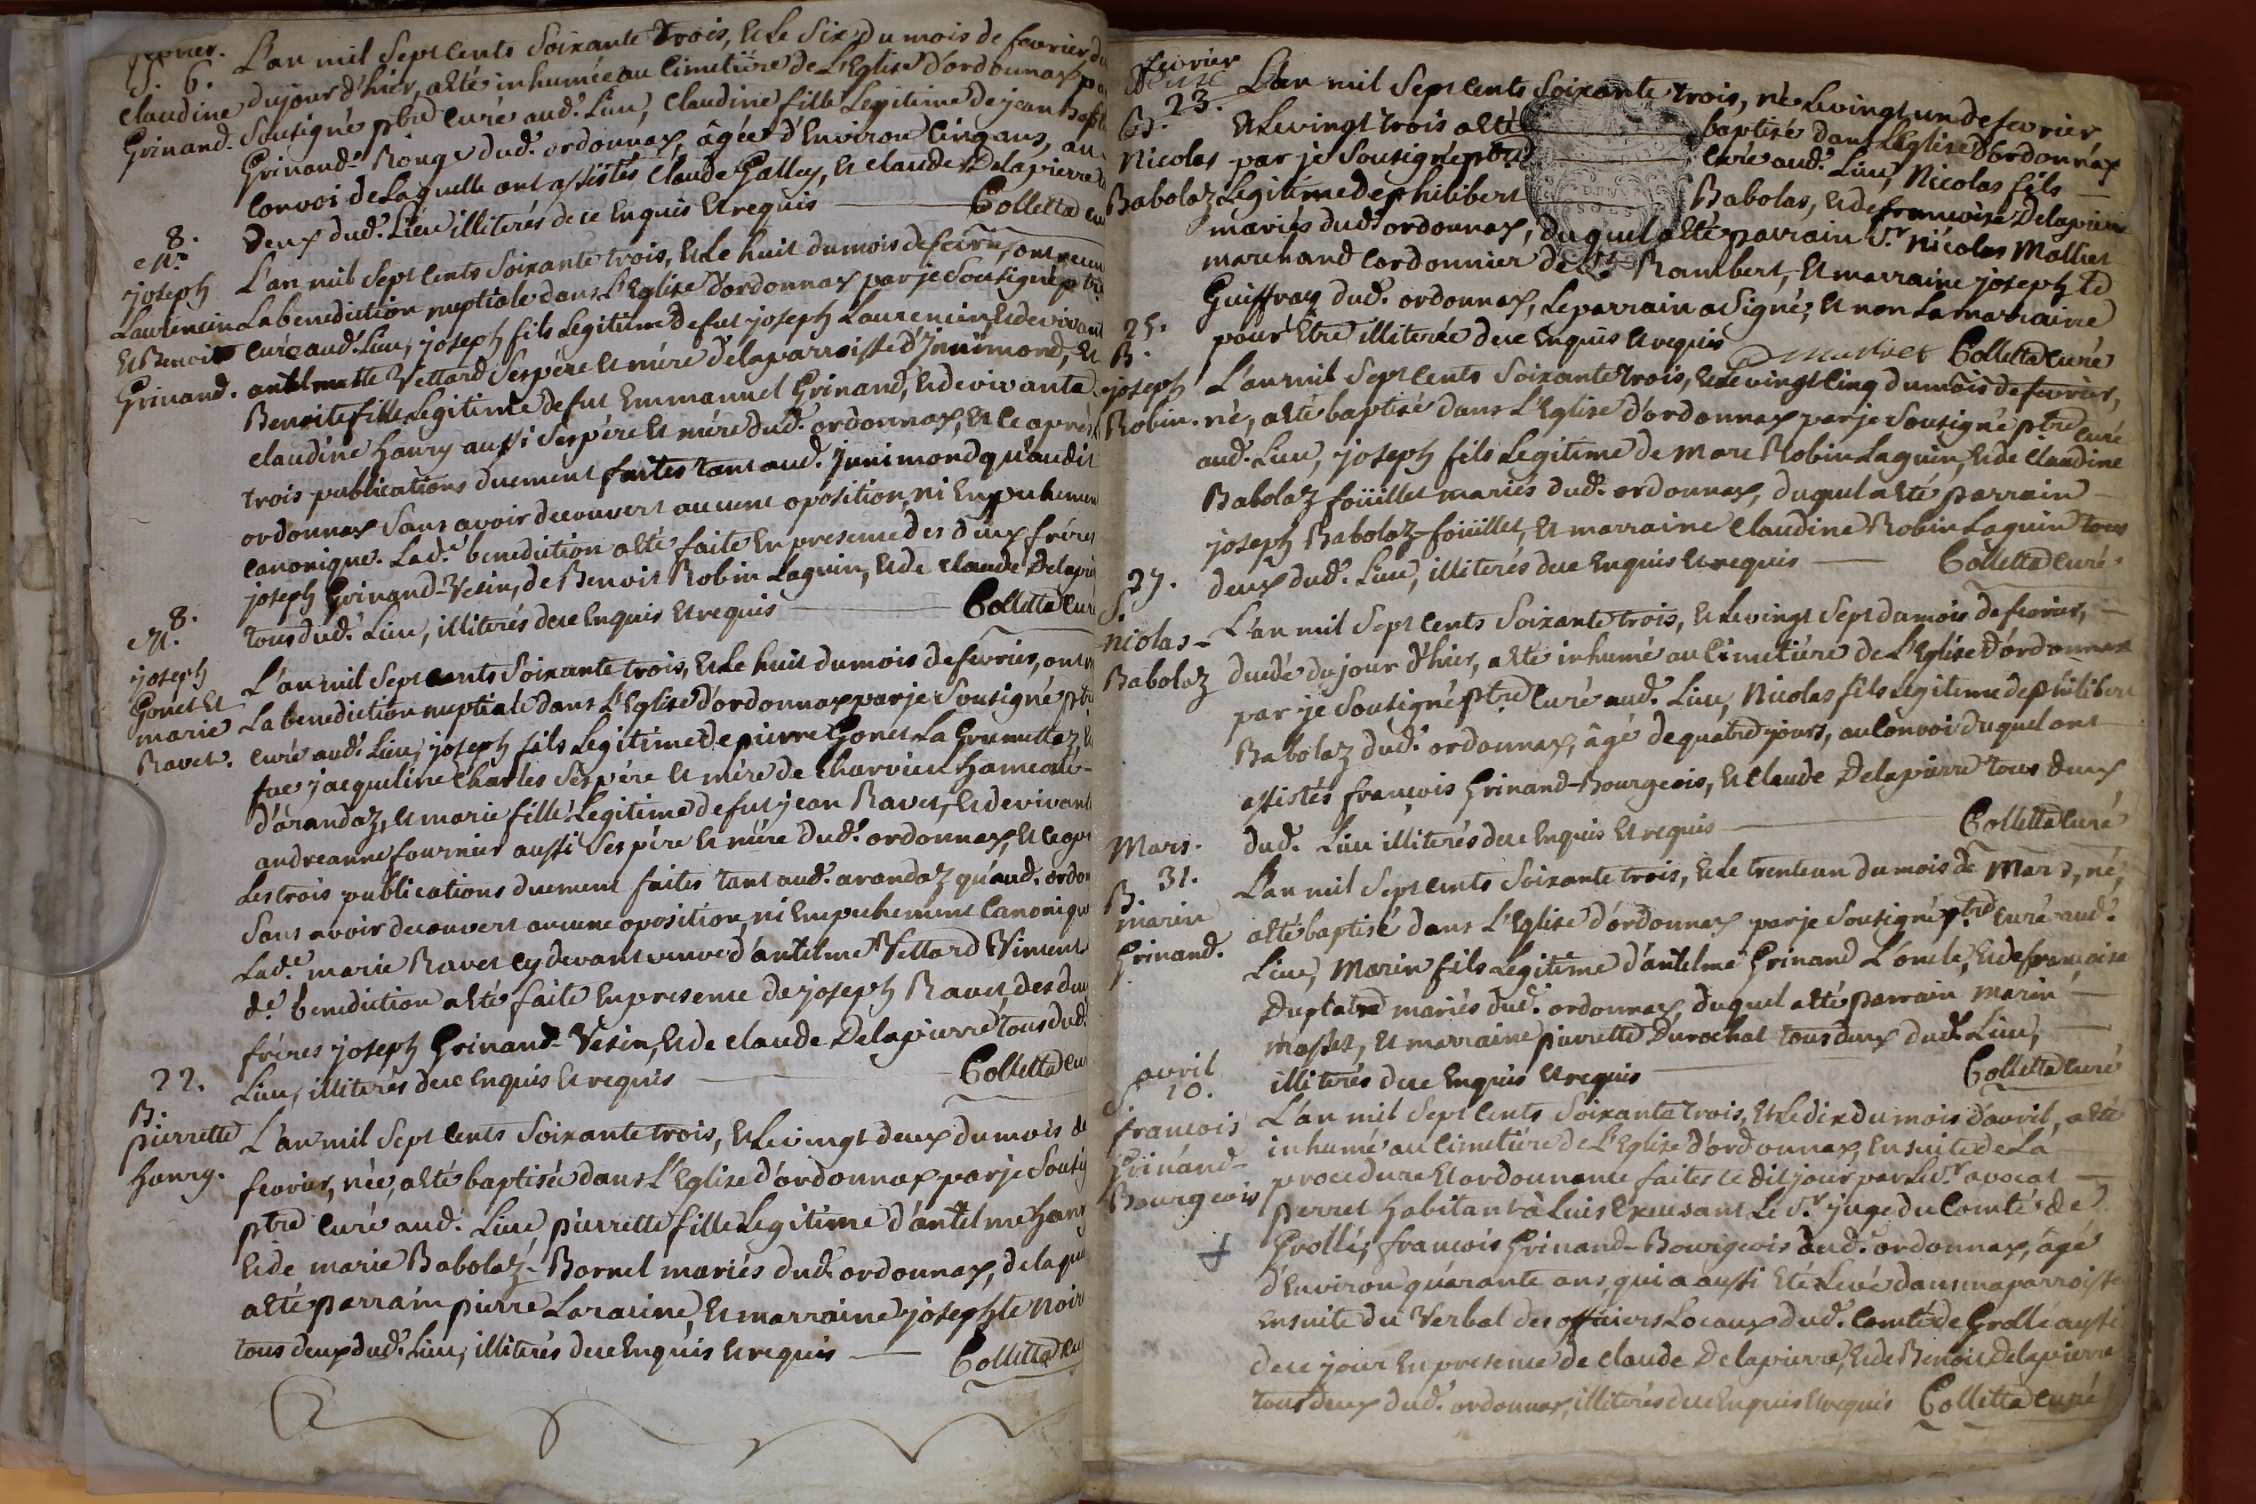 fevrier.
S. 6.
Claudine
Grinand.
L'an mil sept cents soixante trois, et le six du mois de fevrier
du jour d'hier, a eté inhumée au Cimetiére de L'Eglise d'ordonnax
sousigné ptre Curé aud.t Lieu, Claudine fille Legitime de jean
Grinand Rouge dud.t ordonnax, âgée d'Environ Cinq ans, au
Convoi de Laquelle ont assistés Claude Galley, et claude Delapierre
deux dud.t Lieu illiterés de ce Enquis et requis Colletta
8.
M.
joseph
Laurencin
et Benoite
Grinand.
L'an mil sept cents soixante trois, et le huit du mois de fevrier, ont
La benediction nuptiale dans L'Eglise d'ordonnax par je sousigné ptre
curé aud.t Lieu, joseph fils Legitime de fut joseph Laurencin, et de vivante
antelmette Vettard ses pére et mére de la parroisse d'Jnnimond, et
Benoite fille Legitime de fut Emmanuel Grinand, et de vivante
claudine hanry aussi ses pére et mére dud.t ordonnax, et ce aprés
trois publications duement faites tant aud.t Jnnimond qu'audit
ordonnax sans avoir decouvert aucune oposition, ni Empechement
canonique. Lad.e benediction a eté faite En presence des deux fréres
joseph Grinand-Vesin, de Benoit Robin Laguin, et de claude Delapierre
tous dud.t Lieu, illiterés de ce Enquis et requis Colletta Curé
8.
M.
joseph
Gonet et
marie
Ravet.
L'an mil sept cents soixante trois, et le huit du mois de fevrier, ont
La benediction nuptiale dans L'Eglise d'ordonnax par je sousigné ptre
curé aud.t Lieu, joseph fils Legitime de pierre Gonet La Grumettaz,
fue jacqueline Charles ses pére et mére de Charvieu hameau
d'arandaz, et marie fille Legitime de fut jean Ravet, et de vivante
andreanne fournier aussi ses pére et mére dud.t ordonnax, et ce
Les trois publications duement faites tant aud.t arandaz qu'aud.t
sans avoir decouvert aucune oposition, ni Empechement Canonique
Lad.e marie Ravet cy devant veuve d'antelme Vettard Viment
d.e benediction a eté faite En presence de joseph Ravet, des deux
fréres joseph Grinand-Vesin, et de claude Delapierre tous dud.t
Lieu, illiterés de ce Enquis et requis Colletta
22.
B.
pierrette
hanry.
L'an mil sept cents soixante trois, et le vingt deux du mois de
fevrier, née, a eté baptisée dans L'Eglise d'ordonnax par je
ptre Curé aud.t Lieu, pierrette fille Legitime d'antelme hanry
et de marie Babolaz-Bornel mariés dud.t ordonnax, de
a eté parrain pierre Laracine, et marraine josephte noir
tous deux dud.t Lieu, illiterés de ce Enquis et requis Colletta
fevrier
23.
B.
Nicolas
Babolaz
L'an mil sept cents soixante trois, né Le vingt un de fevrier
et Le vingt trois a eté baptisé dans L'Eglise d'ordonnax
par je sousigné ptre curé aud.t Lieu, Nicolas fils
Legitime de philibert Babolas, et de françoise Delapierre
mariés dud.t ordonnax, duquel a eté parrain S.r Nicolas Mallet
marchand Cordonnier de S.t Rambert, et marraine josephte
Guiffray dud.t ordonnax, Le parrain a signé, et non La marraine
pour Etre illiterée de ce Enquis et requis Colletta curé
25.
B.
joseph
Robin.
L'an mil sept cents soixante trois, et Le vingt Cinq du mois de fevrier,
né, a eté baptisé dans L'Eglise d'ordonnax par je sousigné ptre curé
aud.t Lieu, joseph fils Legitime de Marc Robin Laguin, et de Claudine
Babolaz foüillet mariés dud.t ordonnax, duquel a eté parrain
joseph Babolaz-foüillet, et marraine Claudine Robin Laguin tous
deux dud.t Lieu, illiterés de ce Enquis et requis Colletta Curé.
27.
S.
Nicolas
Babolaz
L'an mil sept cents soixante trois, et Le vingt sept du mois de fevrier,
decedé du jour d'hier, a eté inhumé au Cimetiére de L'Eglise d'ordonnax
par je sousigné ptre Curé aud.t Lieu, Nicolas fils Legitime de philibert
Babolaz dud.t ordonnax, âgé de quatre jours, au Convoi duquel ont
assistés françois Grinand-Bourgeois, et claude Delapierre tous deux
dud.t Lieu illiterés de ce Enquis et requis Colletta Curé
Mars.
31.
B.
marin
Grinand.
L'an mil sept cents soixante trois, et Le trente un du mois de Mars, né,
a eté baptisé dans L'Eglise d'ordonnax par je sousigné ptre curé aud.t
Lieu, Marin fils Legitime d'antelme Grinand L'oncle, et de françoise
Duplatre mariés dud.t ordonnax, duquel a eté parrain marin
masset, et marraine pierrette Durochat tous deux dud.t Lieu,
illiterés de ce Enquis et requis Colletta Curé
avril
S. 10.
francois
Grinand-
Bourgeois
L'an mil sept cents soixante trois, et Le dix du mois d'avril, a eté
inhumé au Cimetiére de L'Eglise d'ordonnax, Ensuite de La
procedure et ordonnance faites ce dit jour par Le S.r avocat
perret habitant à Luis Excusant Le S.r juge du Comté de
Grollé, françois Grinand-Bourgeois dud.t ordonnax, âgé
d'Environ quarante ans, qui a aussi eté Levé dans ma parroisse
Ensuite du Verbal des officiers Locaux dud.t Comté de Grollé aussi
de ce jour En presence de claude Delapierre, et de Benoit Delapierre
tous deux dud.t ordonnax, illiterés de ce Enquis et requis Colletta Curé